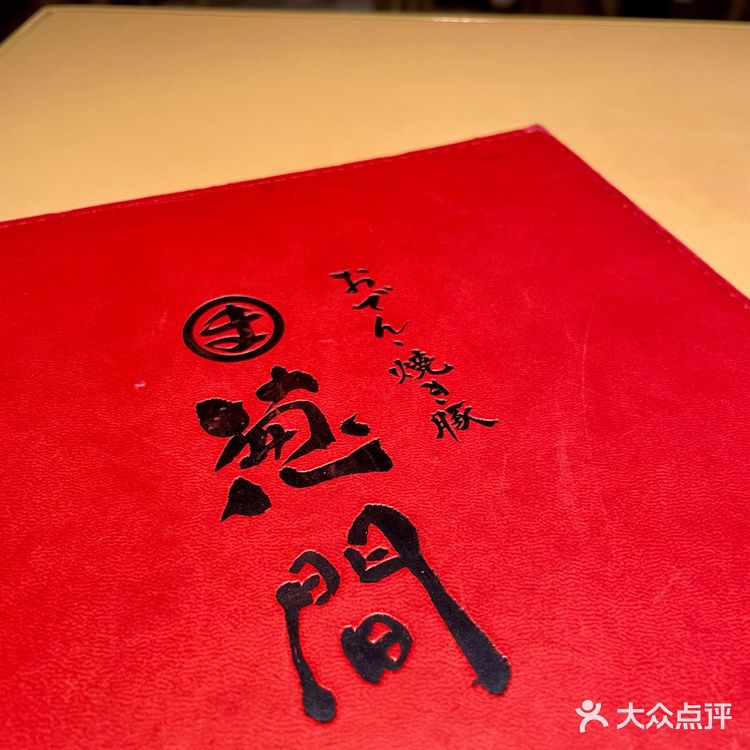 おでん、焼き豚
ま
葱間
大众点评